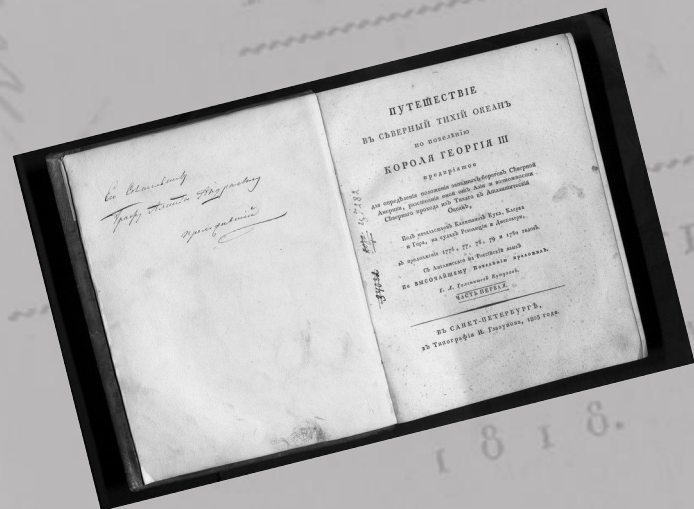 Графу
ПУТЕШЕСТВІЕ
ВЪ СѢВЕРНЫЙ ТИХІЙ ОКЕАНЪ
по повелѣнію
КОРОЛЯ ГЕОРГІЯ III
предпріятое
для опредѣленія положенія западныхъ береговъ Сѣверной
Америки, разстоянія оной отъ Азіи и возможности
Сѣвернаго прохода изъ Тихаго въ Атлантическій
Океанъ,
Подъ начальствомъ Капитановъ Кука, Клерка
и Гора, на судахъ Резолюціи и Дисковери,
въ продолженіе 1776, 77, 78, 79 и 1780 годовъ.
Съ Англинскаго на Россійскій языкъ
По ВЫСОЧАЙШЕМУ Повелѣнію преложилъ
Голенищевъ Кутузовъ.
ЧАСТЬ ПЕРВАЯ.
ВЪ САНКТ-ПЕТЕРБУРГѢ,
въ Типографіи И. Глазунова, 1805 года.
1818.